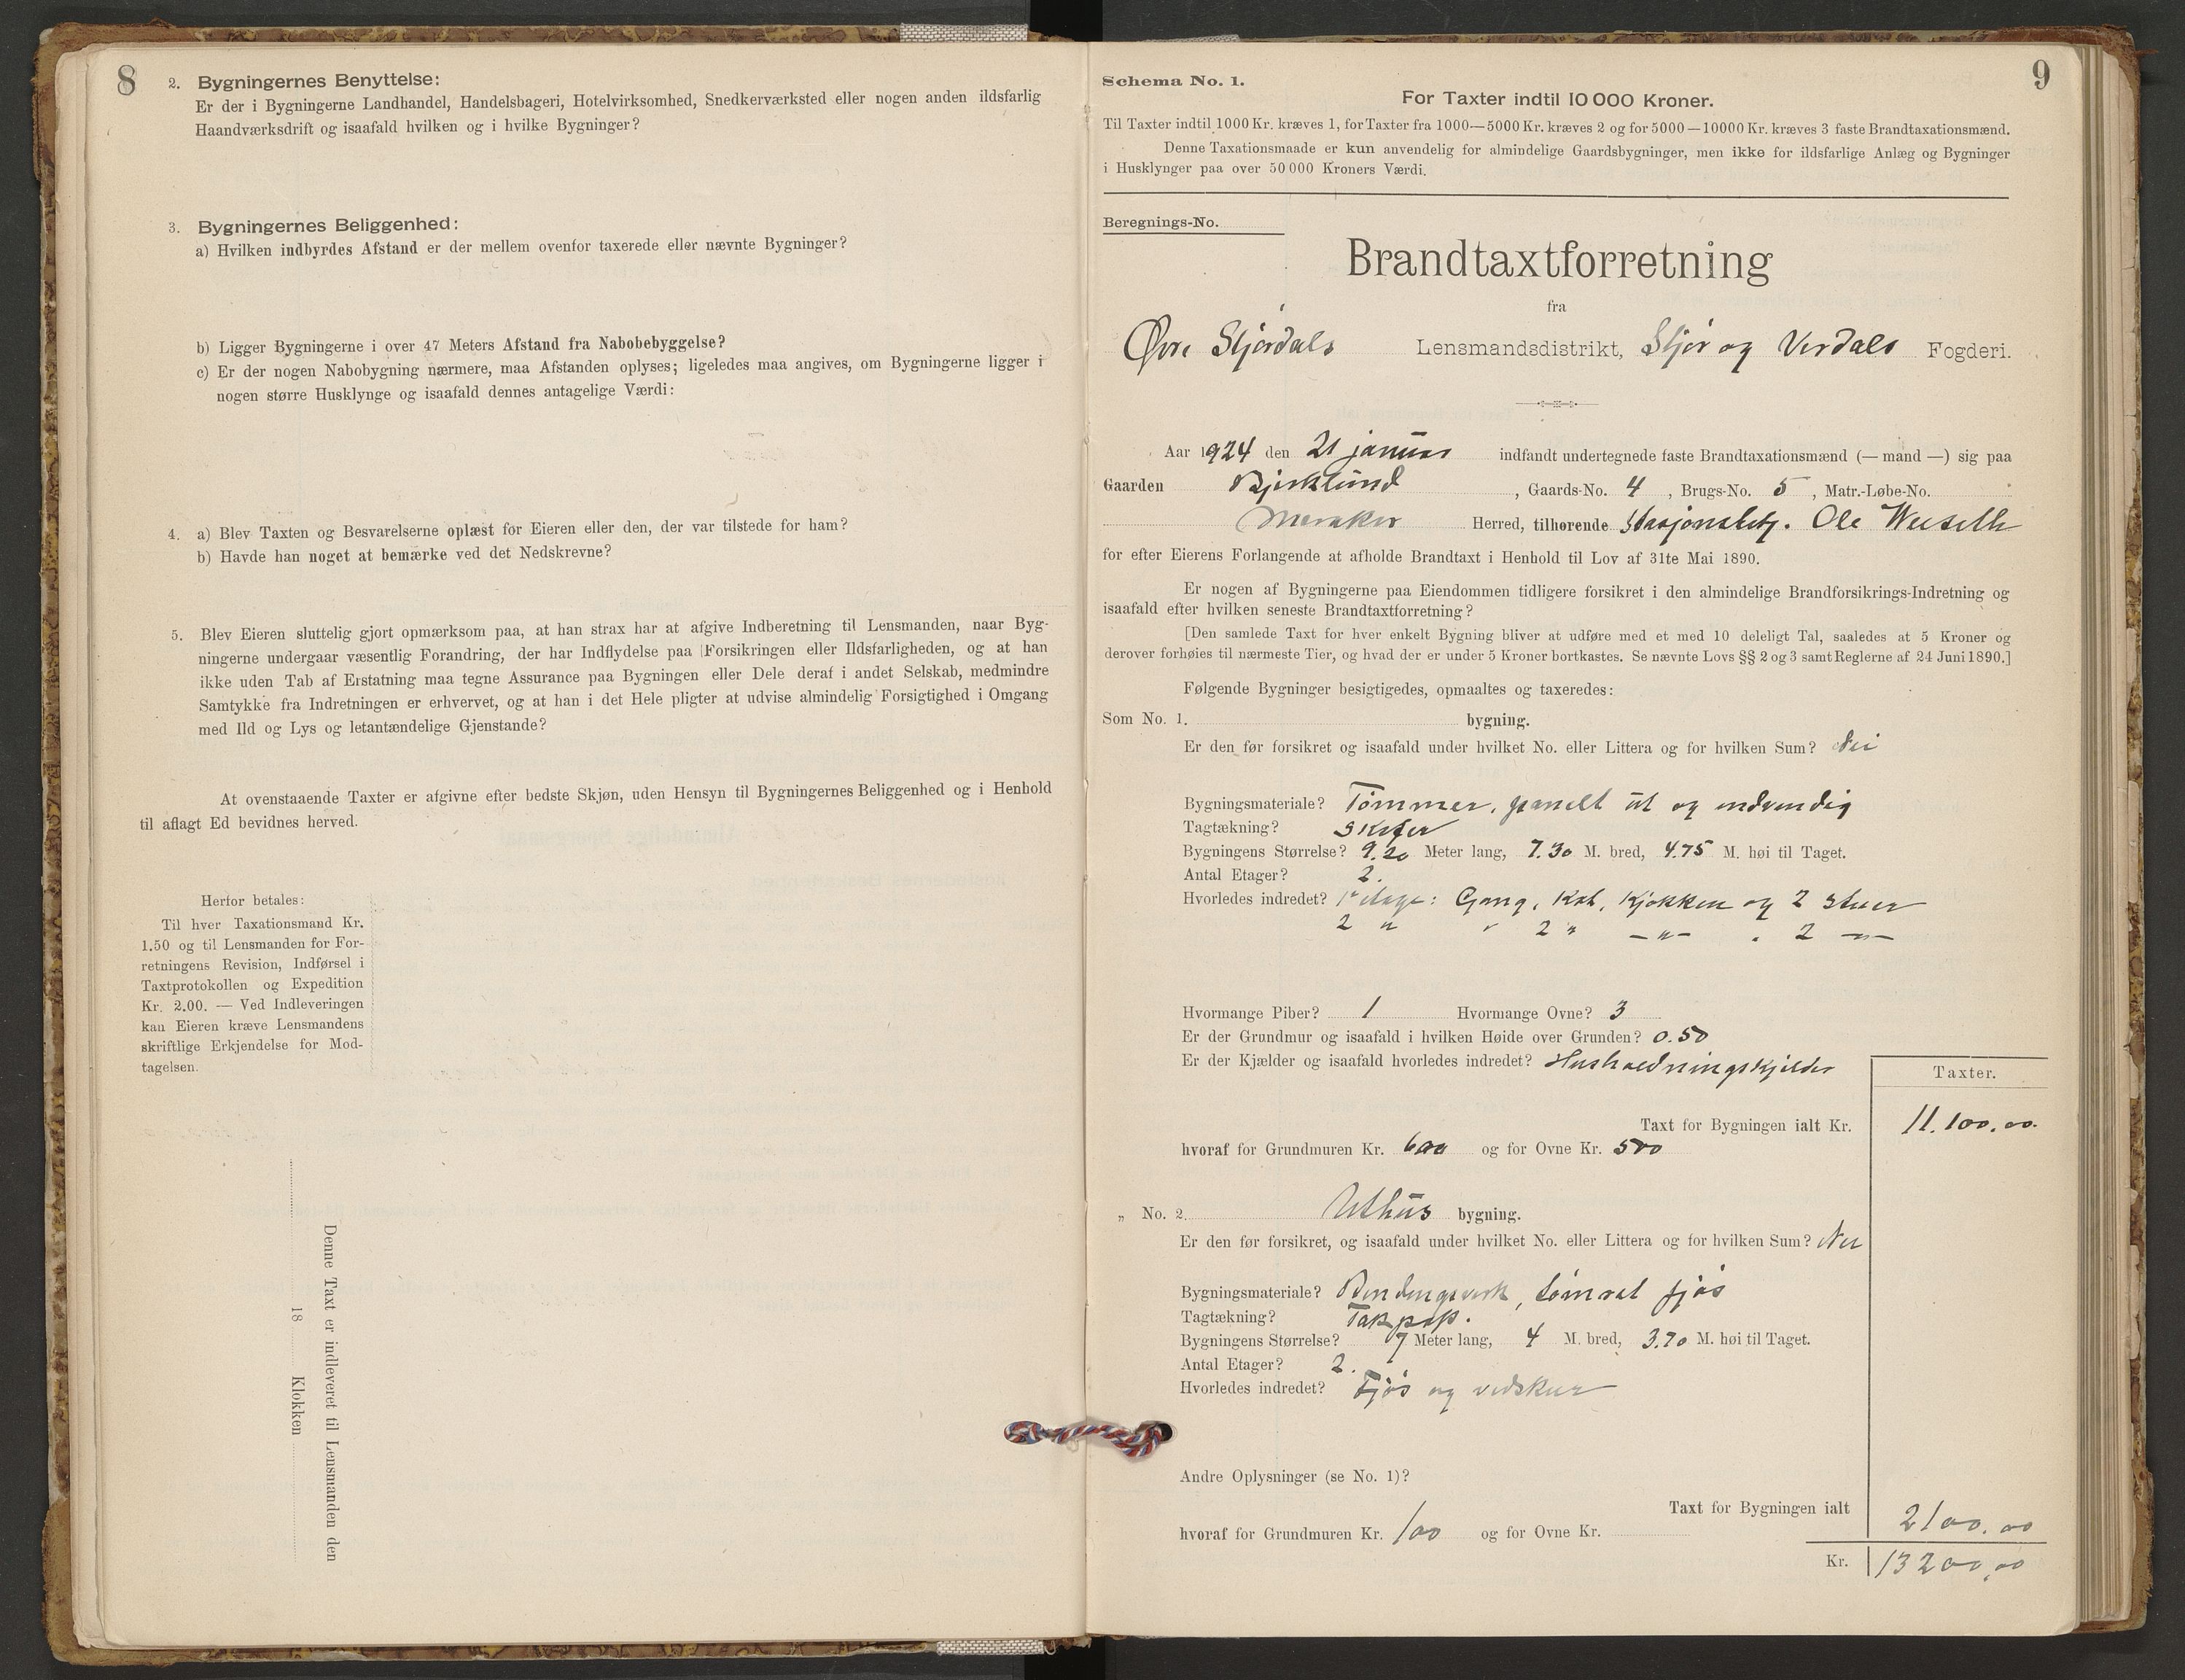 8
2. Bygningernes Benyttelse:
Er der i Bygningerne Landhandel, Handelsbageri, Hotelvirksomhed, Snedkerværksted eller nogen anden ildsfarlig
Haandværksdrift og isaafald hvilken og i hvilke Bygninger?
3. Bygningernes Beliggenhed:
a) Hvilken indbyrdes Afstand er der mellem ovenfor taxerede eller nævnte Bygninger?
b) Ligger Bygningerne i over 47 Meters Afstand fra Nabobebyggelse?
c) Er der nogen Nabobygning nærmere, maa Afstanden oplyses; ligeledes maa angives, om Bygningerne ligger i
nogen større Husklynge og isaafald dennes antagelige Værdi:
4. a) Blev Taxten og Besvarelserne oplæst for Eieren eller den, der var tilstede for ham?
b) Havde han noget at bemærke ved det Nedskrevne?
5. Blev Eieren sluttelig gjort opmærksom paa, at han strax har at afgive Indberetning til Lensmanden, naar Byg-
ningerne undergaar væsentlig Forandring, der har Indflydelse paa Forsikringen eller Ildsfarligheden, og at han
ikke uden Tab af Erstatning maa tegne Assurance paa Bygningen eller Dele deraf i andet Selskab, medmindre
Samtykke fra Indretningen er erhvervet, og at han i det Hele pligter at udvise almindelig Forsigtighed i Omgang
med Ild og Lys og letantændelige Gjenstande?
At ovenstaaende Taxter er afgivne efter bedste Skjøn, uden Hensyn til Bygningernes Beliggenhed og i Henhold
til aflagt Ed bevidnes herved.
Herfor betales:
Til hver Taxationsmand Kr.
1.50 og til Lensmanden for For-
retningens Revision, Indførsel i
Taxtprotokollen og Expedition
Kr. 2.00. — Ved Indleveringen
kan Eieren kræve Lensmandens
skriftlige Erkjendelse for Mod-
tagelsen.
Denne Taxt er indleveret til Lensmanden den
18 Klokken
9
Schema No. 1.
For Taxter indtil 10 000 Kroner.
Til Taxter indtil 1000 Kr. kræves 1, for Taxter fra 1000—5000 Kr. kræves 2 og for 5000—10000 Kr. kræves 3 faste Brandtaxationsmænd.
Denne Taxationsmaade er kun anvendelig for almindelige Gaardsbygninger, men ikke for ildsfarlige Anlæg og Bygninger
i Husklynger paa over 50 000 Kroners Værdi.
Beregnings-No.
Brandtaxtforretning
fra
Øvre Stjørdals Lensmandsdistrikt, Stjør og Verdals Fogderi.
Aar 1924 den 21 januar indfandt undertegnede faste Brandtaxationsmænd (— mand —) sig paa
Gaarden Bjerklund, Gaards-No. 4, Brugs-No. 5, Matr.-Løbe-No.
Meraker Herred, tilhørende Stasjonsbetj. Ole
for efter Eierens Forlangende at afholde Brandtaxt i Henhold til Lov af 31te Mai 1890.
Er nogen af Bygningerne paa Eiendommen tidligere forsikret i den almindelige Brandforsikrings-Indretning og
isaafald efter hvilken seneste Brandtaxtforretning?
[Den samlede Taxt for hver enkelt Bygning bliver at udføre med et med 10 deleligt Tal, saaledes at 5 Kroner og
derover forhøies til nærmeste Tier, og hvad der er under 5 Kroner bortkastes. Se nævnte Lovs §§ 2 og 3 samt Reglerne af 24 Juni 1890.]
Følgende Bygninger besigtigedes, opmaaltes og taxeredes:
Som No. 1. bygning.
Er den før forsikret og isaafald under hvilket No. eller Littera og for hvilken Sum? Nei
Bygningsmateriale? Tømmer, panelt ut og indvendig
Tagtækning? Skifer
Bygningens Størrelse? 9.20 Meter lang, 7.30 M. bred, 4.75 M. høi til Taget.
Antal Etager? 2.
Hvorledes indredet? 1ste etage: Gang, Kot, Kjøkken og 2 stuer
2 " " 2 " —"— . 2 —"—
Hvormange Piber? 1 Hvormange Ovne? 3
Er der Grundmur og isaafald i hvilken Høide over Grunden? 0.50
Er der Kjælder og isaafald hvorledes indredet? Husholdningskjelder
Taxter.
Taxt for Bygningen ialt Kr. 11.100.00.
hvoraf for Grundmuren Kr. 600 og for Ovne Kr. 500
„ No. 2. Uthus bygning.
Er den før forsikret, og isaafald under hvilket No. eller Littera og for hvilken Sum? Nei
Bygningsmateriale? Bendingsverk, tømret fjøs
Tagtækning? Takpap.
Bygningens Størrelse? 7 Meter lang, 4 M. bred, 3.70 M. høi til Taget.
Antal Etager? 2.
Hvorledes indredet? Fjøs og vedskur
Andre Oplysninger (se No. 1)?
Taxt for Bygningen ialt 2100.00
hvoraf for Grundmuren Kr. 100 og for Ovne Kr.
Kr. 13200,00